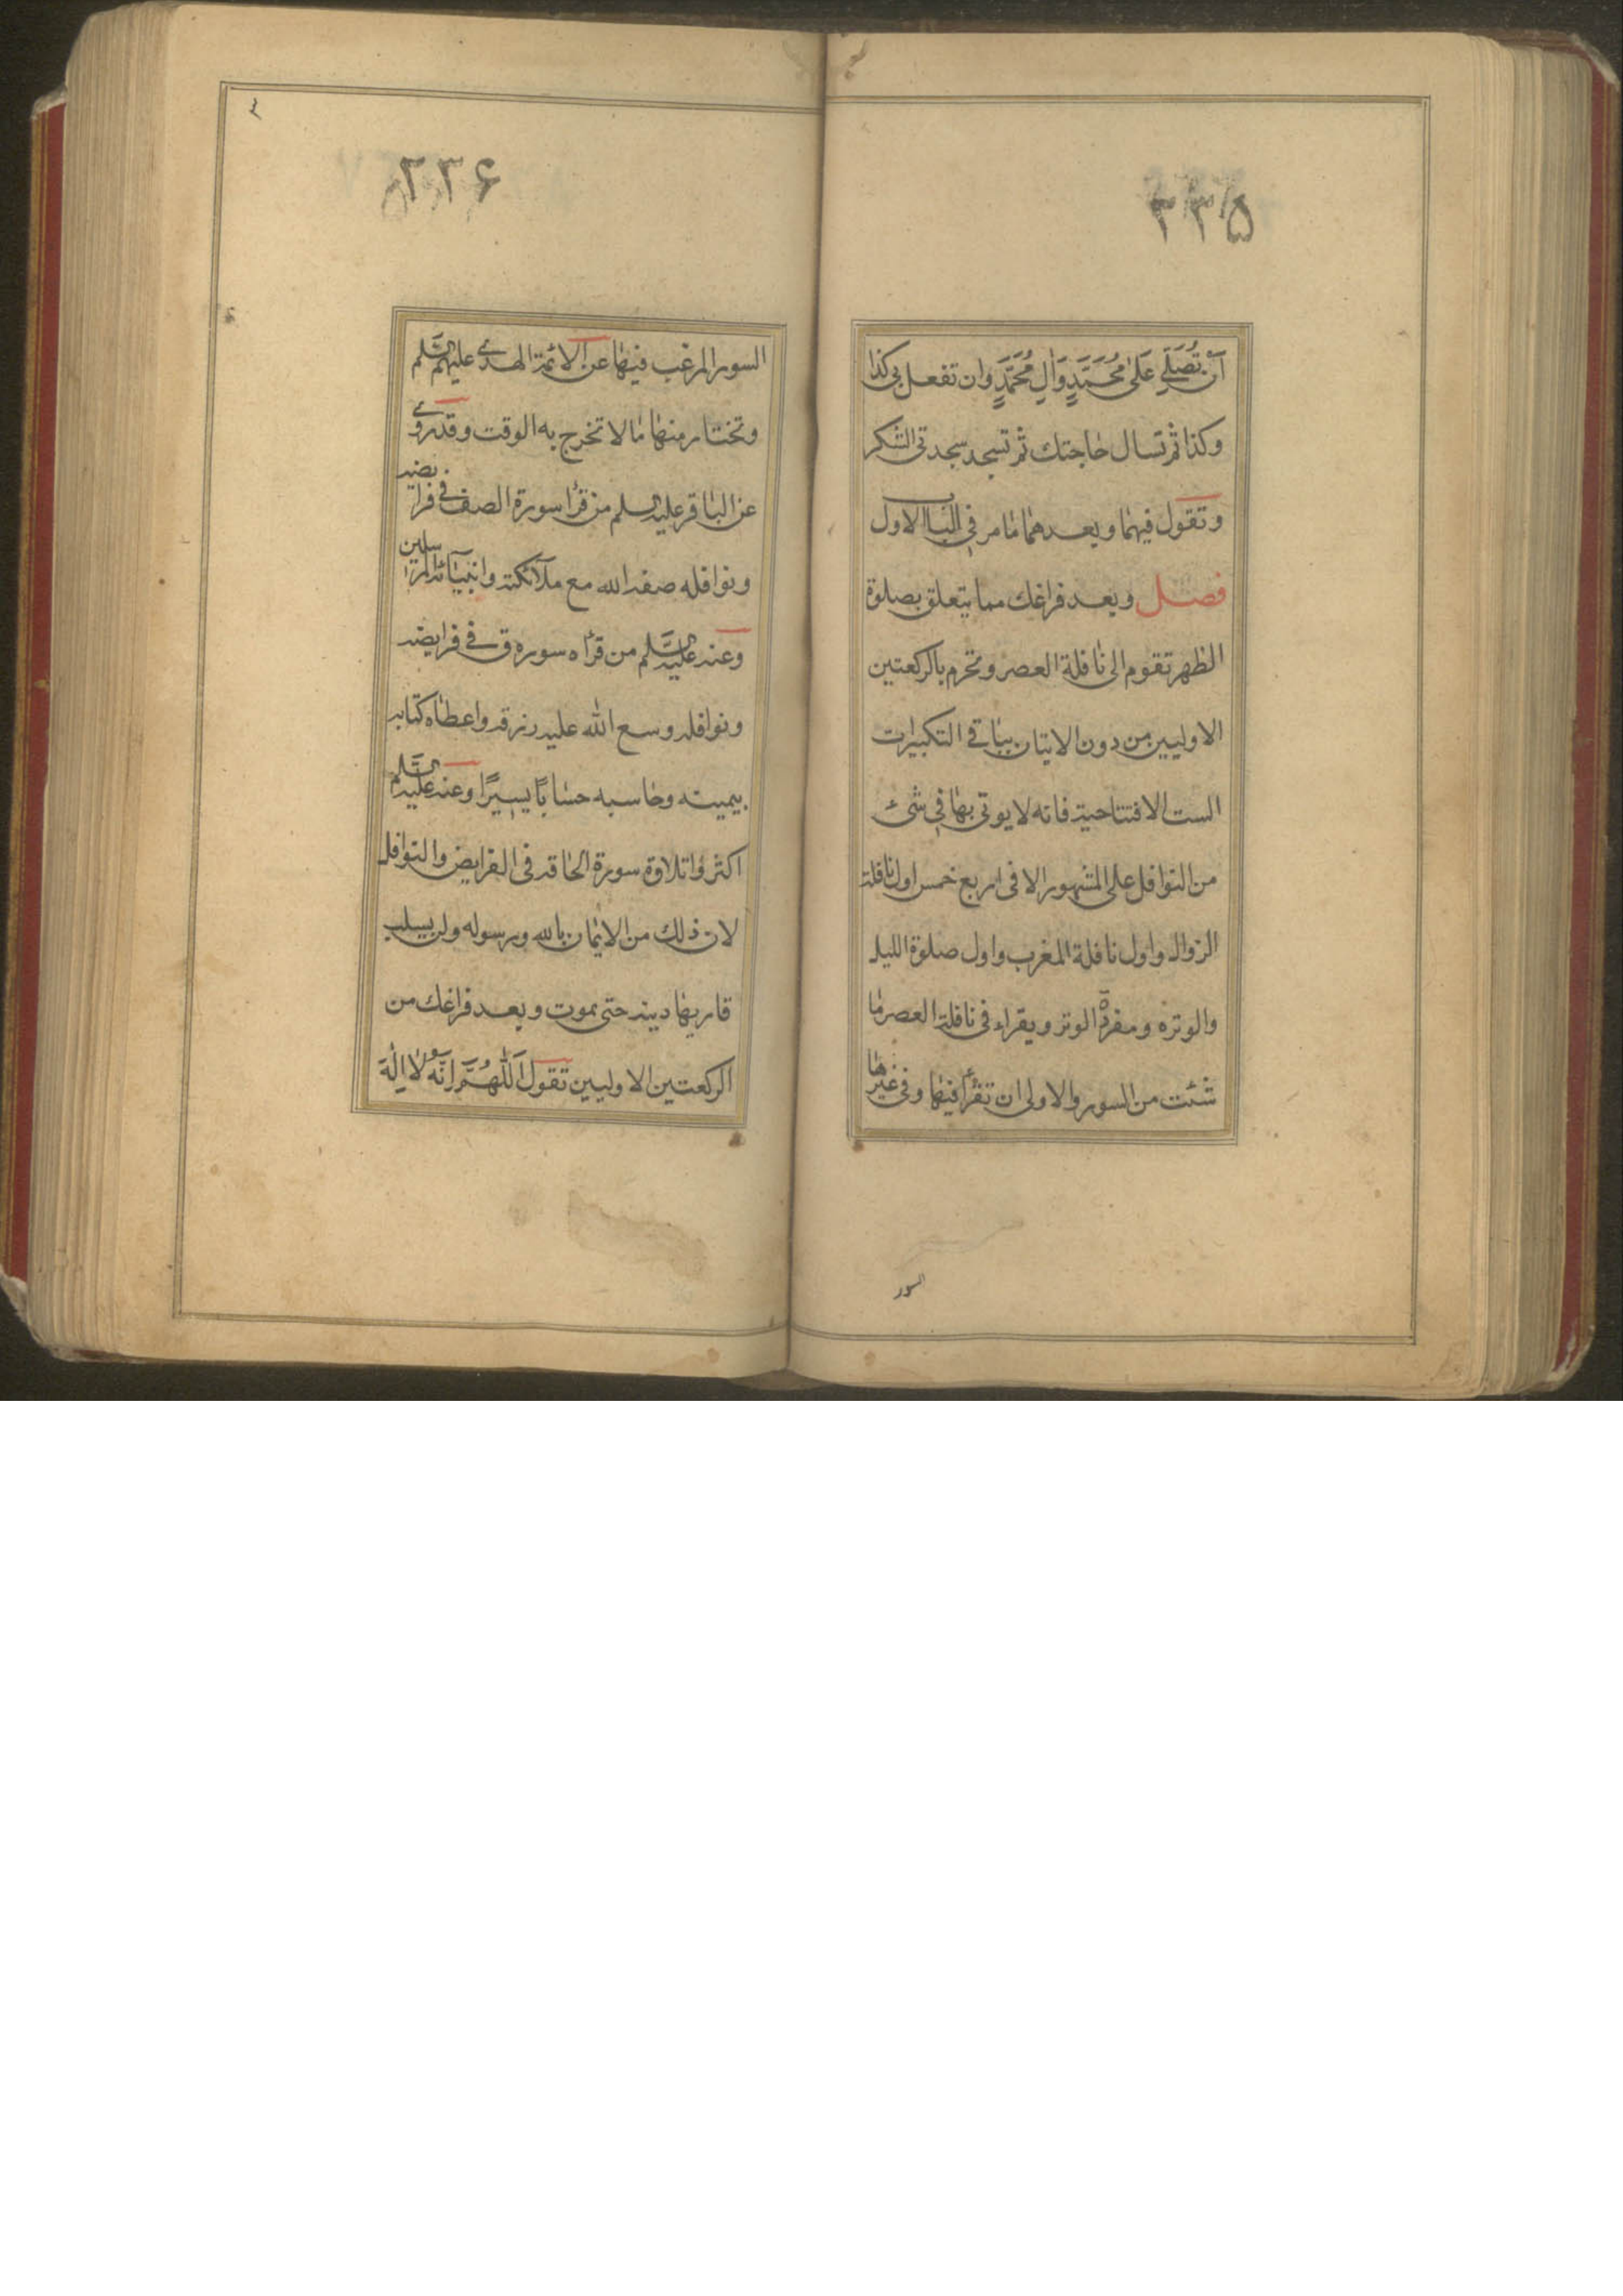 ۲۳۵
اَنْ تُصَلِّيَ عَلىٰ مُحَمَّدٍ وَاٰلِ مُحَمَّدٍ وان تفعل بى كذا
وكذا ثم تسال حاجتك ثم تسجد سجدتى الشكر
وتقول فيهما وبعدهما ما مر فى الباب الاول
فصل وبعد فراغك مما يتعلق بصلوة
الظهر تقوم الى نافلة العصر وتحرم بالركعتين
الاوليين من دون الاتيان بباقى التكبيرات
الست الافتتاحية فانه لا يوتى بها فى شئ
من النوافل على المشهور الا فى اربع خمس اول نافلة
الزوال واول نافلة المغرب واول صلوة الليل
والوتره ومفردة الوتر ويقراء فى نافلة العصر ما
شئت من السور والاولى ان تقرأ فيها وفى غيرها
السور
۲۳۶
السور المرغب فيها عن الائمة الهدى عليهم السلم
وتختار منها ما لا تخرج به الوقت وقد روى
عن الباقر عليه السلم من قرأ سورة الصف فى فرايضه
ونوافله صفه الله مع ملآئكته وانبيآئه المرسلين
وعنه عليه السلم من قرأه سوره ق فى فرايضه
ونوافله وسع الله عليه رزقه واعطاه كتابه
بيمينه وحاسبه حسابًا يسيرًا وعنه عليه السلم
اكثروا تلاوة سورة الحاقه فى الفرايض والنوافل
لان ذلك من الايمان بالله وبرسوله ولن يسلب
قاريها دينه حتى يموت وبعد فراغك من
الركعتين الاوليين تقول اَللّٰهُمَّ اِنَّهُ لا اِلٰهَ